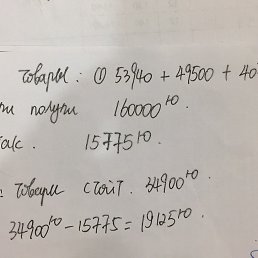 товары: ① 53940 + 49500 + 40
получи 160000 ю
15775 ю.
товары стоит. 34900 ю.
34900 ю - 15775 = 19125 ю.